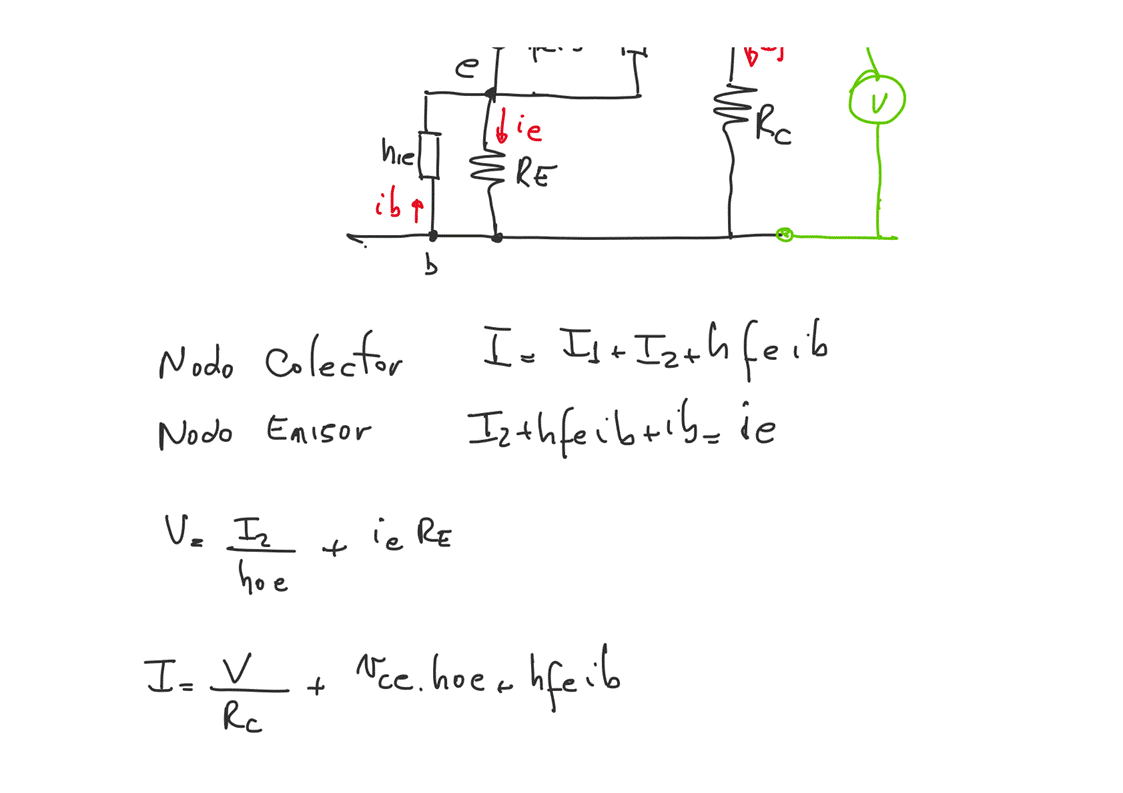 e
ie
V
RC
hie
RE
ib
b
Nodo Colector I = I1 + I2 + hfe ib
Nodo Emisor I2 + hfe ib + ib = ie
V = I2 / hoe + ie RE
I = V / RC + vce . hoe + hfe ib